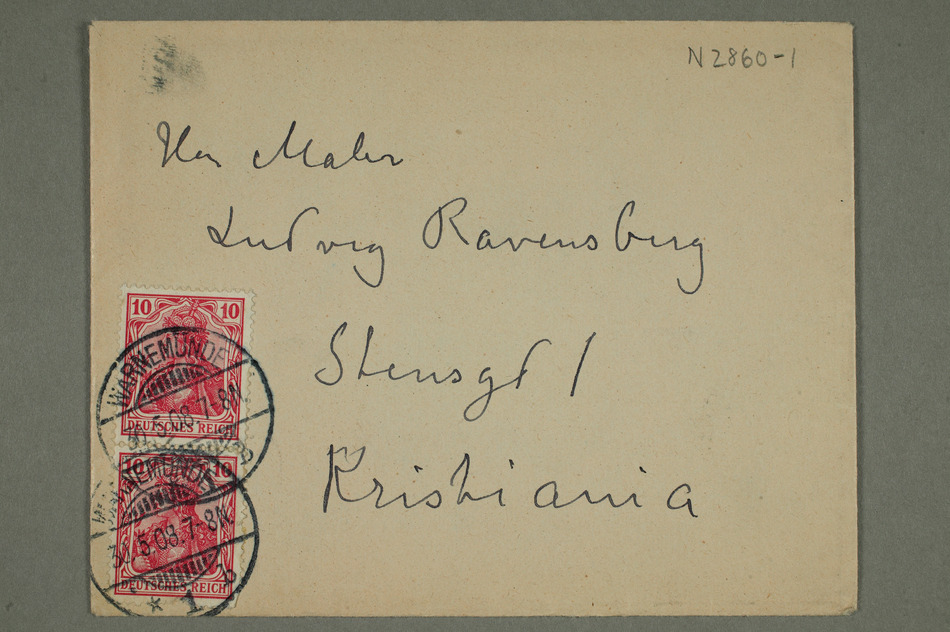 N 2860-1
Herr Maler
Ludvig Ravensberg
Stensgd 1
Kristiania
10 10
DEUTSCHES REICH
WARNEMÜNDE
5.08.7-8N.
10 10
DEUTSCHES REICH
WARNEMÜNDE
5.08.7-8N.
* 1b